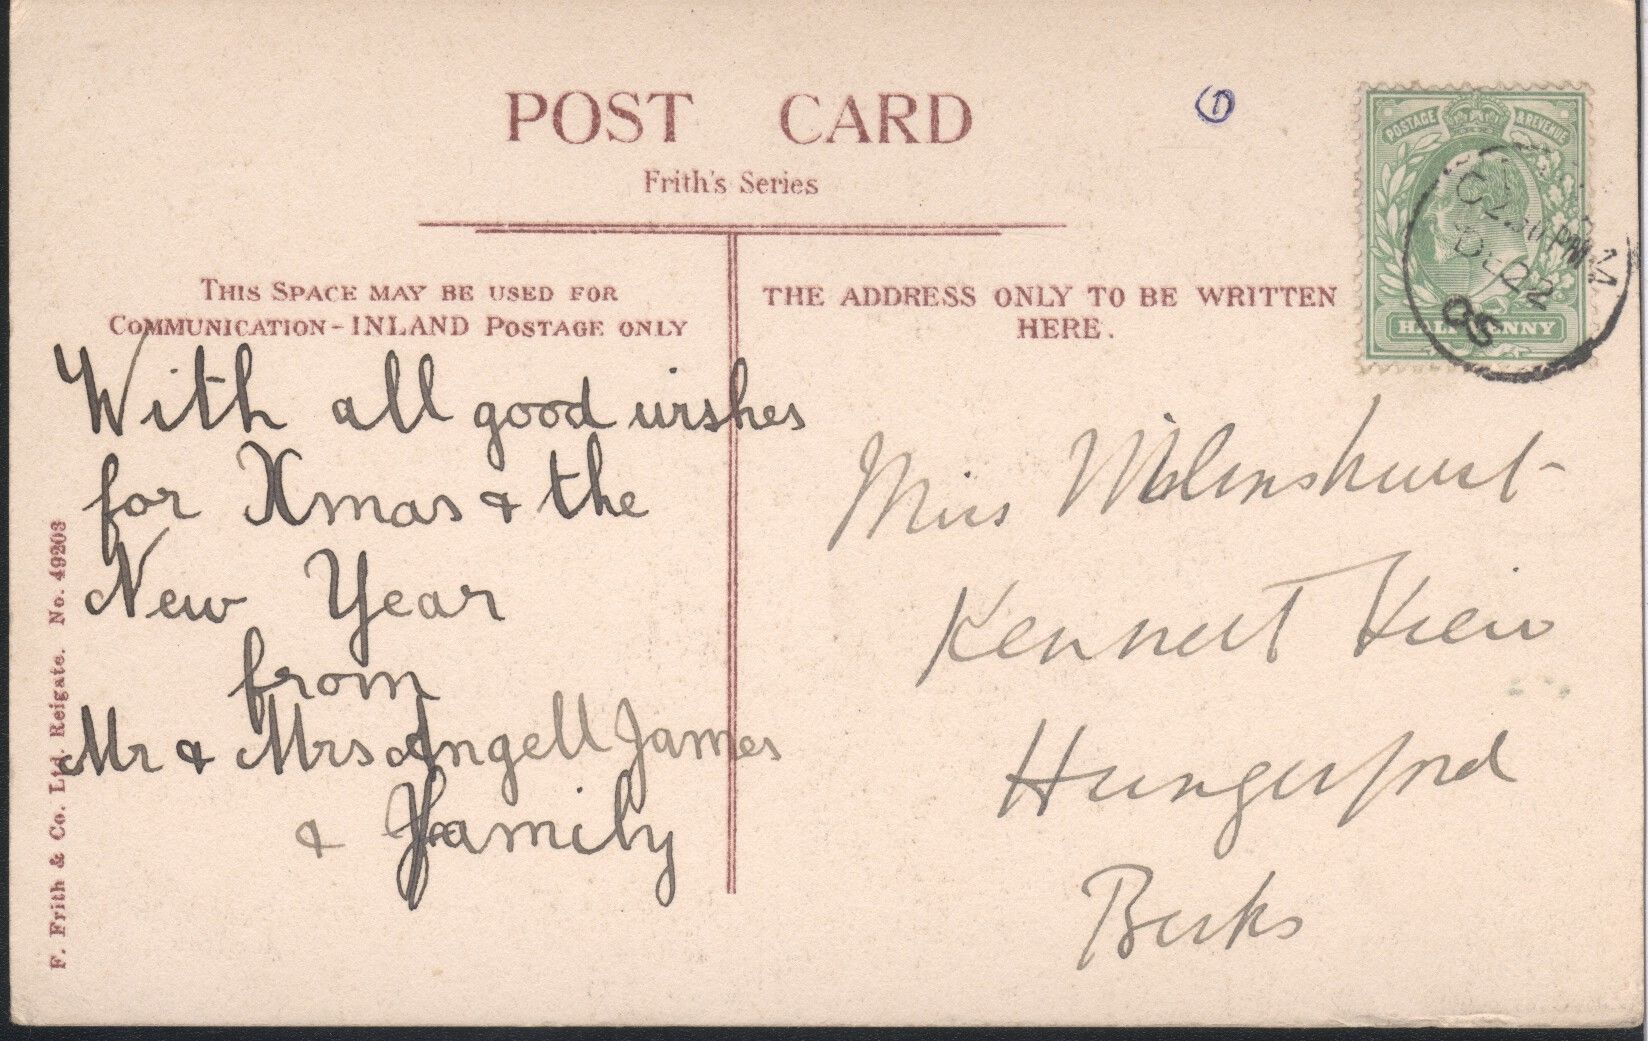 POST CARD
Frith's Series
THIS SPACE MAY BE USED FOR
COMMUNICATION - INLAND POSTAGE ONLY
With all good wishes
for Xmas & the
New Year
from
Mr & Mrs Angell James
& Family
F. Frith & Co. Ltd. Reigate. No. 49203
THE ADDRESS ONLY TO BE WRITTEN
HERE.
POSTAGE & REVENUE
HALFPENNY
PM
DE 22
05
Miss
Kennett View
Hungerford
Berks